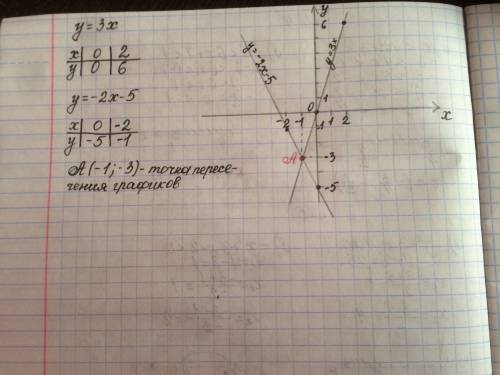 y=3x
x | 0 | 2
y | 0 | 6
y=-2x-5
x | 0 | -2
y | -5 | -1
A(-1;-3)-точка пересе-
чения графиков
y
6
y=-2x-5
y=3x
0 1
-2 -1 1 2 x
-1
A -3
-5